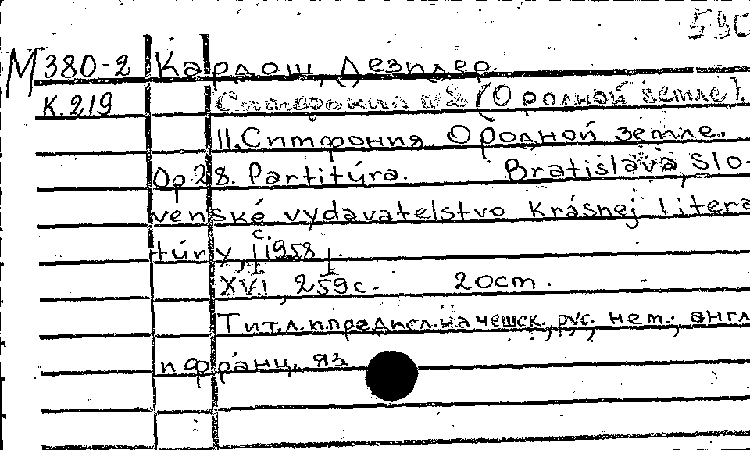 590
М 380-2 Кардош, Дезидер.
К.219 Симфония №2 (О родной земле).
II. Симфония О родной земле.
Op 28. Partitúra. Bratislava, Slo-
venské vydavatelstvo krásnej litera
túry, [1958]
XVI, 259 с. 20 cm.
Тит.л. и предисл. на чешск., рус., нем., англ
и франц. яз